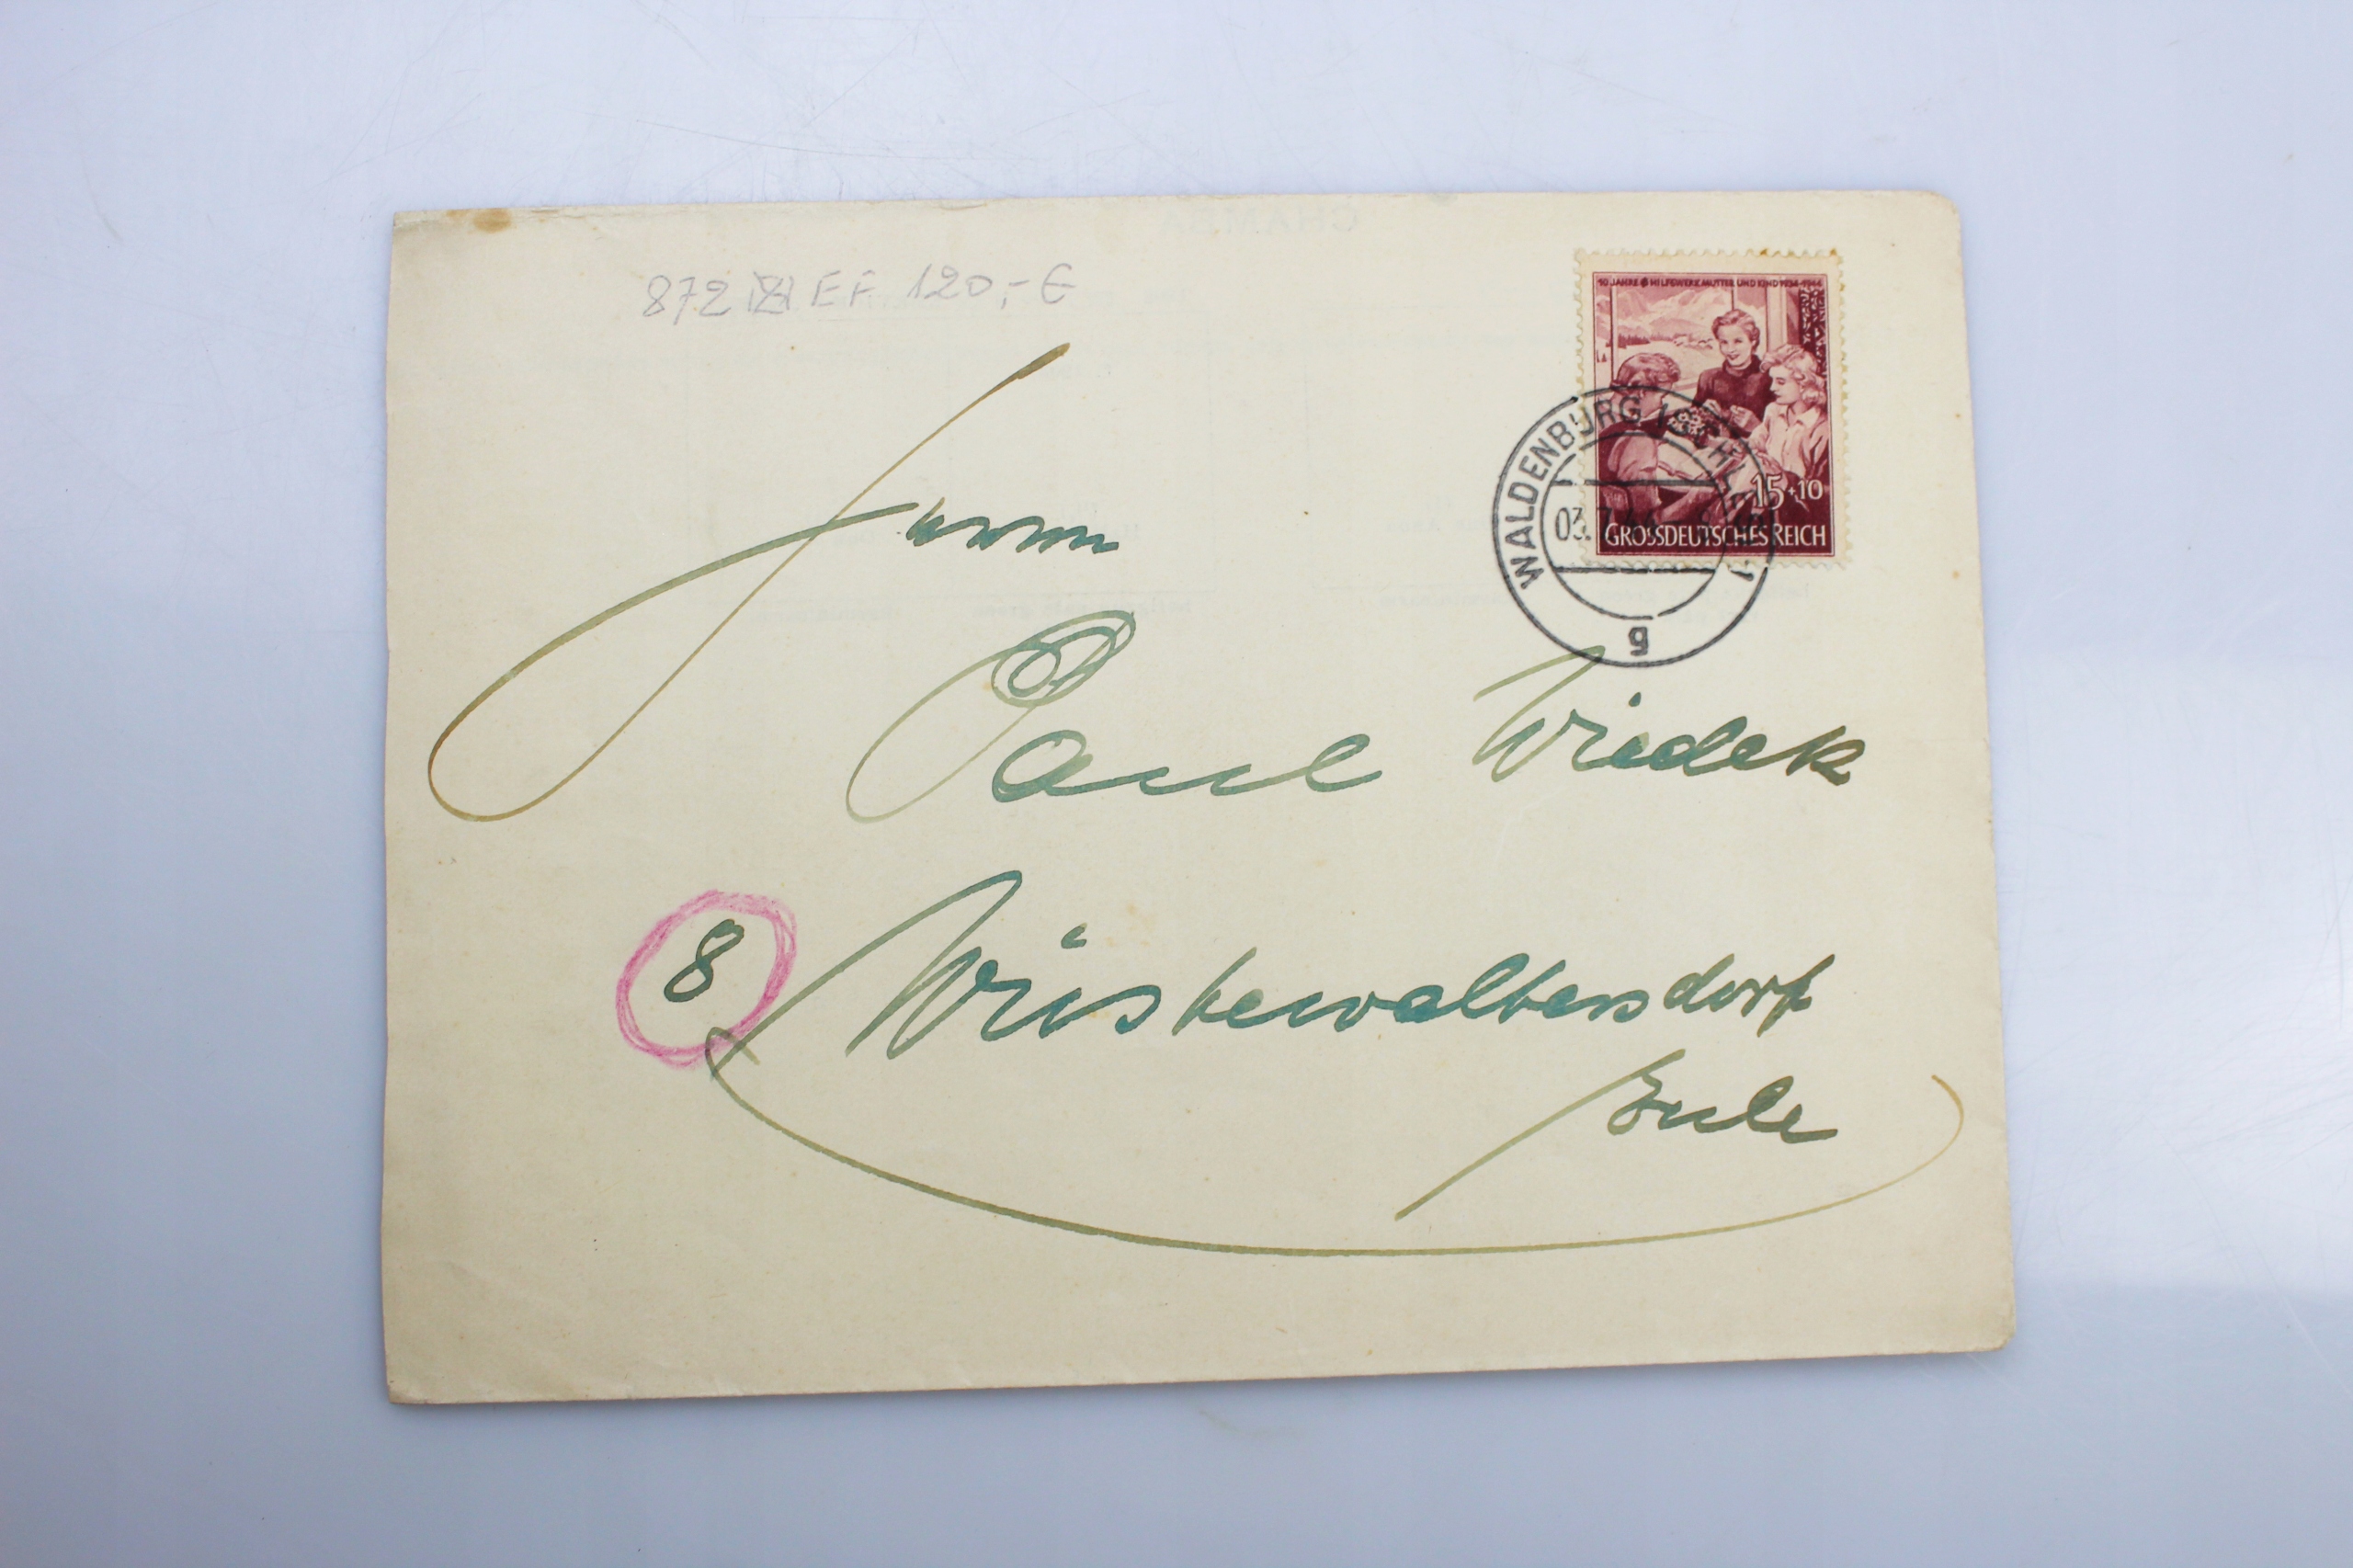 872 EF 120,- €
10 JAHRE HILFSWERK MUTTER UND KIND 1934-1944
15+10
GROSSDEUTSCHES REICH
WALDENBURG (SCHLES) 1
03.7.44
g
Herrn
Paul Wiedek
8 Wüstewaltersdorf
Eule